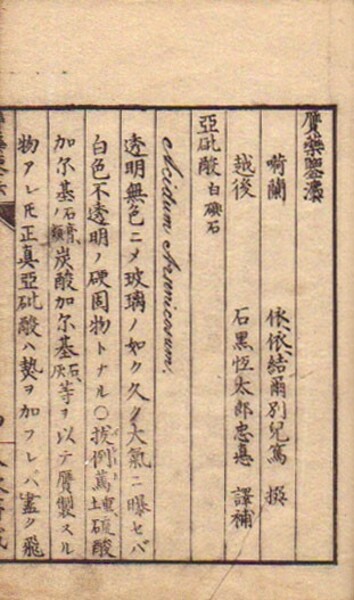 贋藥鑒法
荷蘭 依、依、結爾別兒篤 撰
越後 石黒恒太郎忠悳 譯補
亞砒酸 白砒石
Acidum Arsenicosum.
透明無色ニメ玻璃ノ如ク久ク大氣ニ曝セバ
白色不透明ノ硬固物トナル〇拔例萬土硫酸
加尔基ノ石膏類炭酸加尔基石灰石等ヲ以テ贋製スル
物アレ𪜈正真亞砒酸ハ𤍠ヲ加フレバ盡ク飛